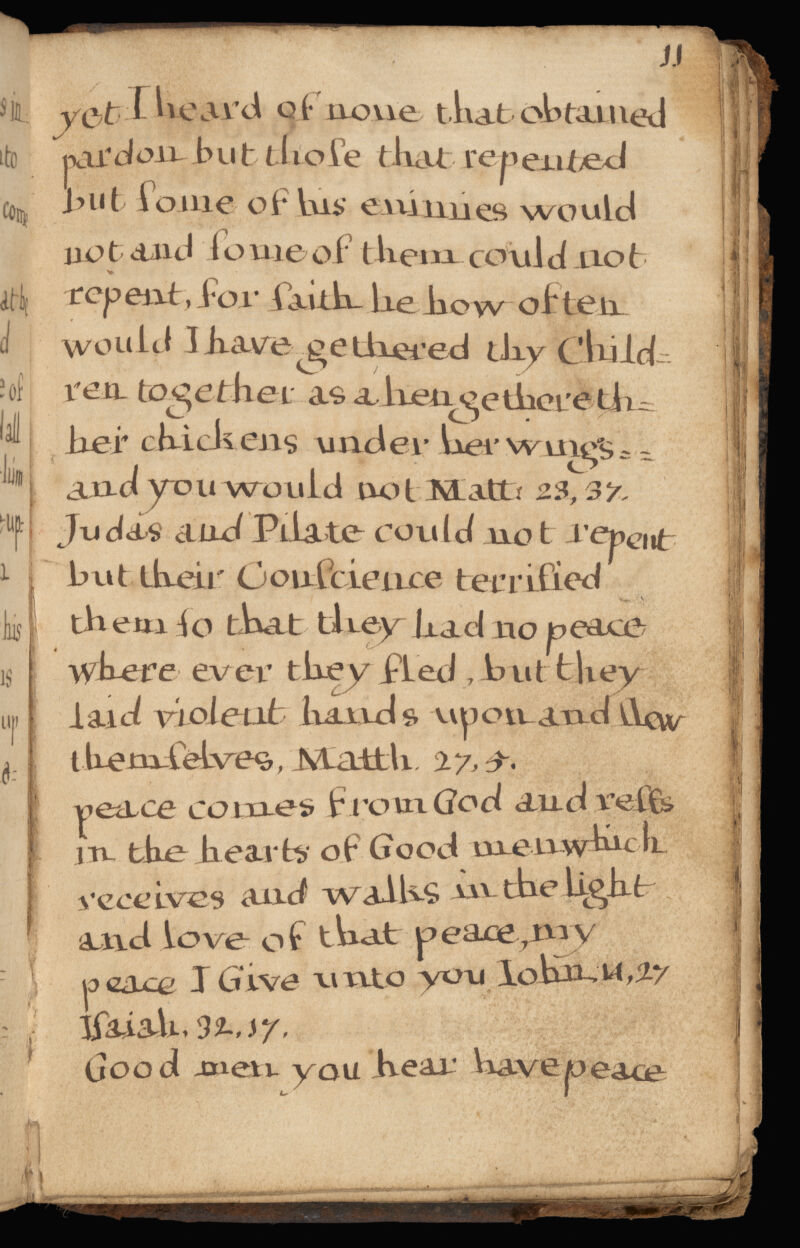 11
yet I heard of none that obtained
pardon but thoſe that repented
but ſome of his enimies would
not and ſome of them could not
repent, for ſaith he how often
would I have gethered thy Child=
ren together as a hen gethereth=
her chickens under her wings==
and you would not Matt: 23, 37.
Judas and Pilate could not repent
but their Conſcience terrified
them ſo that they had no peace
where ever they fled, but they
laid violent hands upon and ſlew
themſelves, Matth. 27, 5.
peace comes from God and reſts
in the hearts of Good men which
receives and walks in the light
and love of that peace, my
peace I Give unto you Iohn, 14, 27
Iſaiah, 32, 17.
Good men you hear have peace